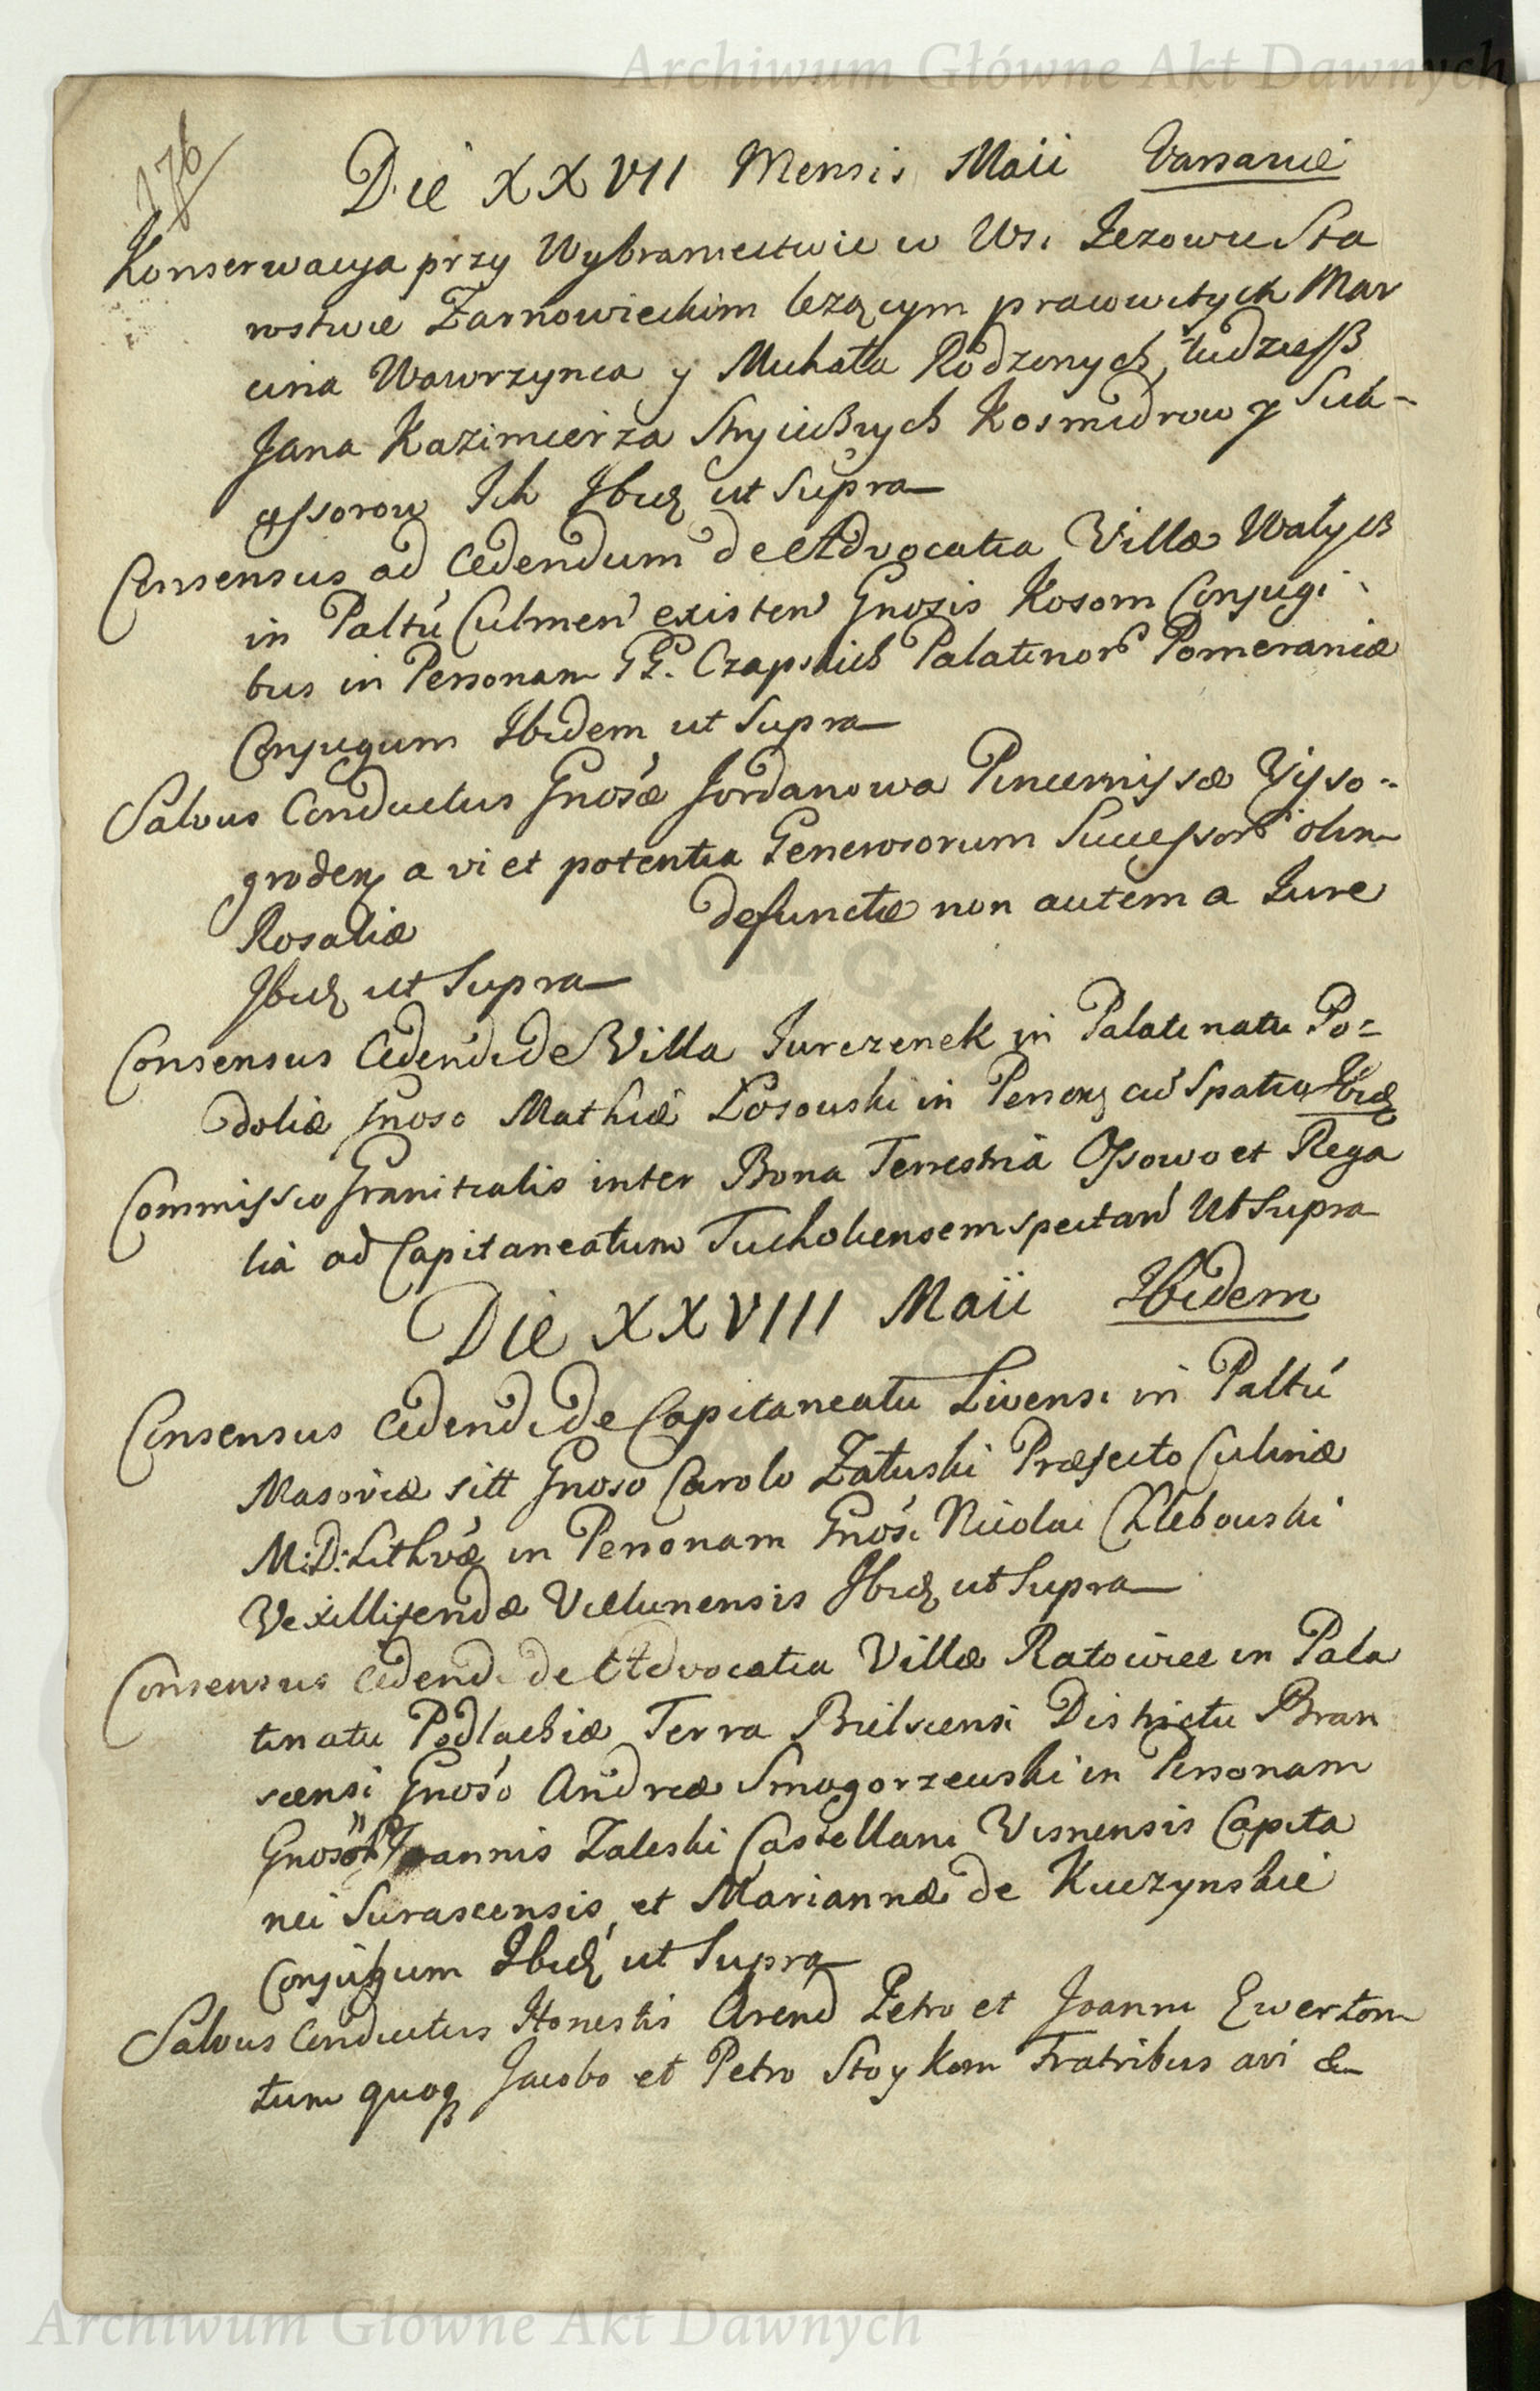 Archiwum Główne Akt Dawnych
176
Die XXVII Mensis Maii Varsaviæ
Konserwacya przy Wybraniectwie w Wsi Jezowie Sta
rostwie Zarnowieckim lezącym prawowitych Mar
cina Wawrzynca y Michała Rodzonych, tudziesz
Jana Kazimierza Stryieznych Kosmidrow y Suk-
cessorow Ich Ibid ut Supra
Consensus ad Cedendum de Advocatia Villæ Wałycz
in Paltú Culmen existen Gnosis Kosom Conjugi
bus in Personam GG. Czapskich Palatinor Pomeraniæ
Conjugum Ibidem ut Supra
Salvus Conductus Gnosæ Jordanowa Pincernissæ Visso-
groden a vi et potentia Generosorum Successor olim
Rosaliæ defunctæ non autem a Jure
Ibid ut Supra
Consensus Cedendi de Villa Jurczenek in Palatinatu Po=
doliæ Gnoso Mathiæ Losowski in Person cū Spatio Ibid
Commissio Granitialis inter Bona Terrestria Ossowo et Rega
lia ad Capitaneatum Tucholiensem spectan Ut Supra
Die XXVIII Maii Ibidem
Consensus Cedendi de Capitaneatu Livensi in Paltú
Masoviæ sitt Gnoso Carolo Załuski Præfecto Culinæ
M:D:Lithvæ in Personam Gnosi Nicolai Chlebowski
Vexilliferidæ Vielunensis Ibid ut Supra
Consensus Cedendi de Advocatia Villæ Ratowiec in Pala
tinatu Podlachiæ Terra Bielscensi Districtu Bran
scensi Gnoso Andreæ Smogorzewski in Personam
Gnosor Joannis Zaleski Castellani Visnensis Capita
nei Surascensis, et Mariannæ de Kuczynskie
Conjugum Ibid ut Supra
Salvus Conductus Honestis Arend Petro et Joanni Ewertom
tum quoq Jacobo et Petro Stoykom Fratribus a vi &
Archiwum Główne Akt Dawnych